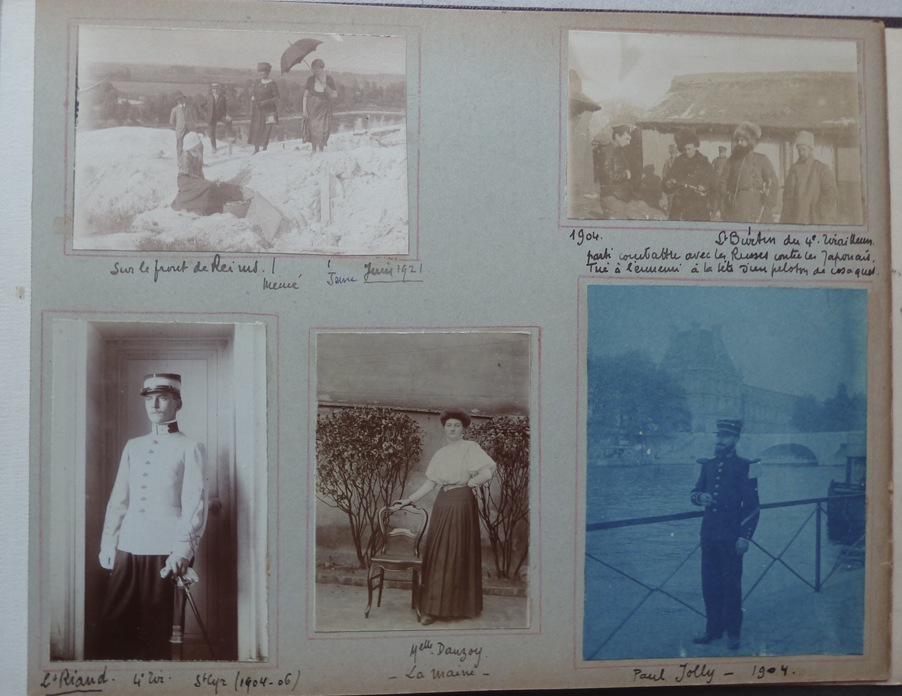 Sur le front de Reims. ! Juin 1921
Mémé
1904. du 4e Tirailleurs.
parti combattre avec les Russes contre les Japonais.
Tué à l'ennemi à la tête d'un peloton de cosaques.
Lt Riand. 4e Tir. St Cyr (1904-06)
Melle Dauzoy
- La
Paul Jolly - 1904.